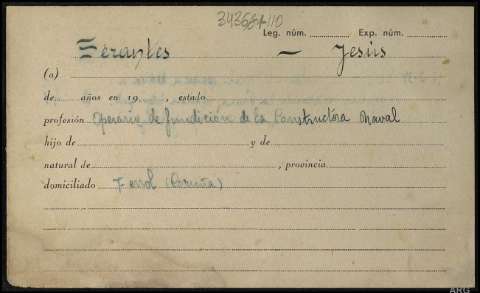 343684-110
Leg. núm. Exp. núm.
Serantes — Jesús
(a)
de años en 19 , estado
profesión Operario de fundición de la Constructora Naval
hijo de y de
natural de , provincia
domiciliado Ferrol (Coruña)
ARG